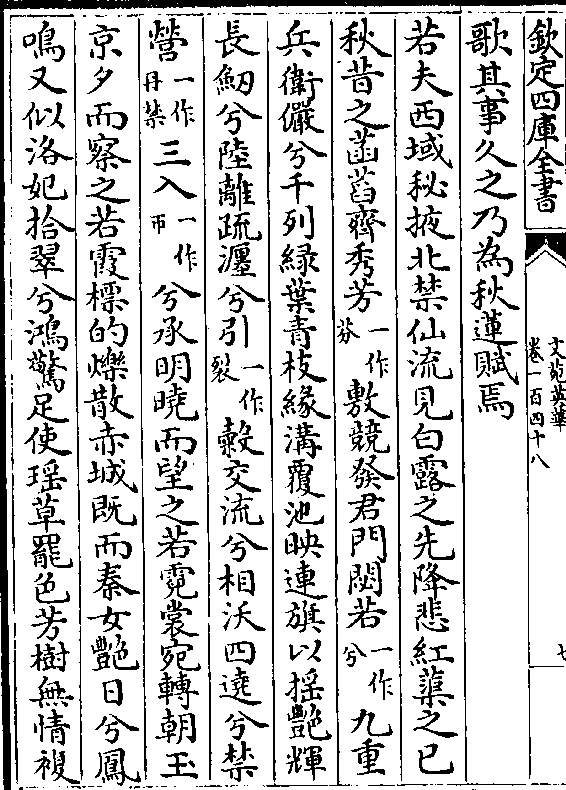 欽定四庫全書
文苑英華
卷一百四十八
七
歌其事久之乃為秋蓮賦焉
若夫西域秘掖北禁仙流見白露之先降悲紅蕖之已
秋昔之菡萏齊秀芳一作芬敷競發君門閟若一作兮九重
兵衛儼兮千列緑葉青枝緣溝覆池映連旗以揺艷輝
長劒兮陸離疏瀍兮引一作裂縠交流兮相沃四遶兮禁
營一作丹禁三入一作帀兮承明曉而望之若霓裳宛轉朝玉
京夕而察之若霞標的爍散赤城既而秦女艷日兮鳳
鳴又似洛妃拾翠兮鴻驚足使瑶草罷色芳樹無情複